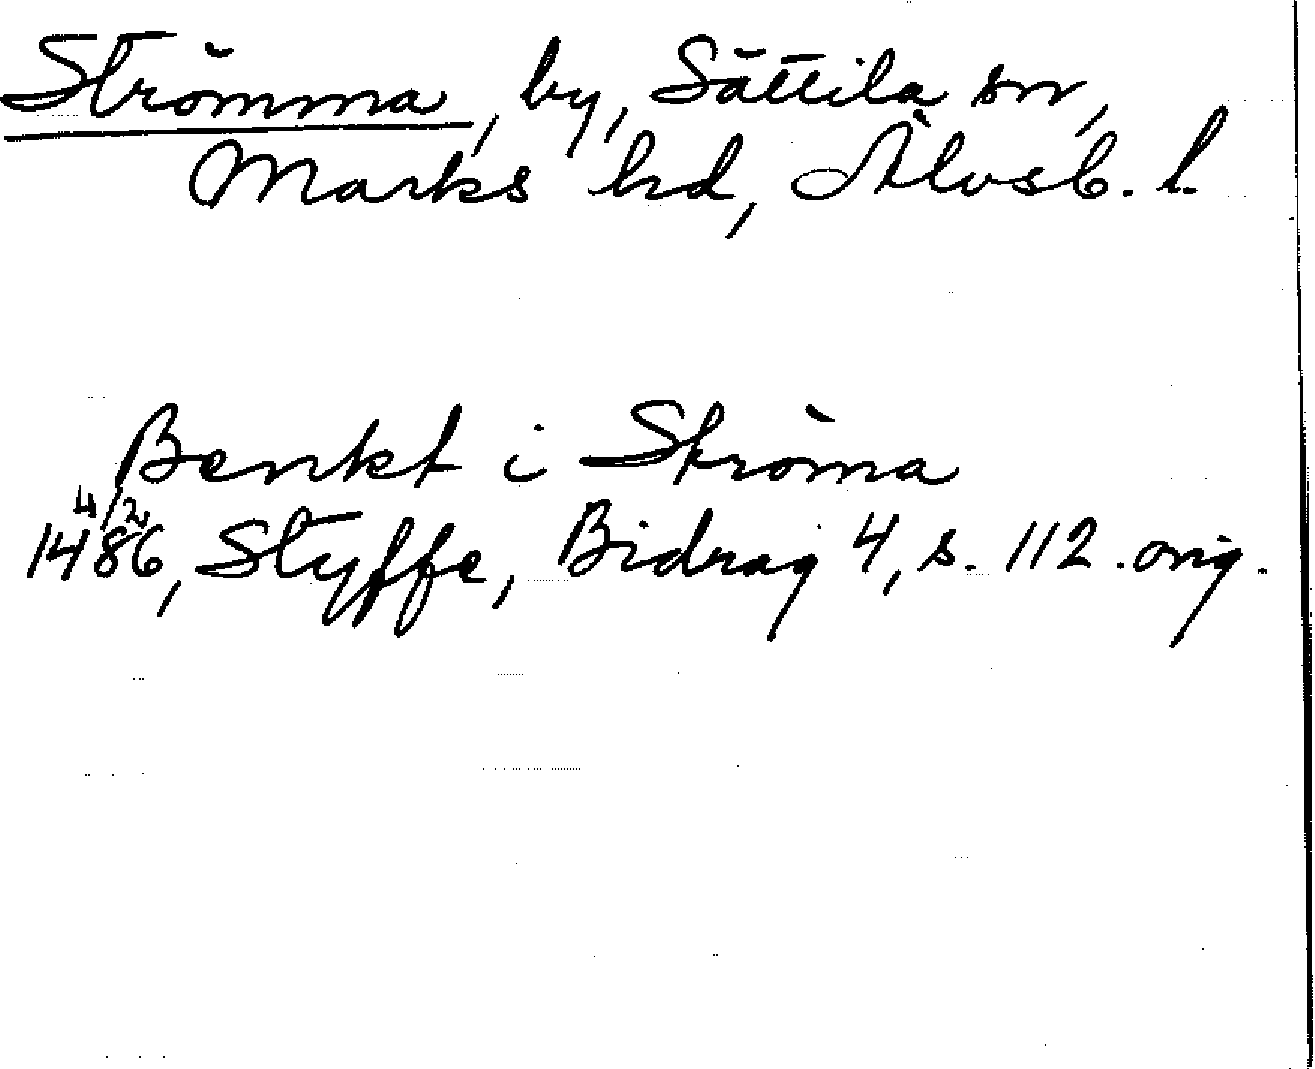 Strömma, by, Sätila sn,
Marks hd, Älvsb. l.
Benkt i Ströma
4/2
1486, Styffe, Bidrag 4, s. 112. orig.